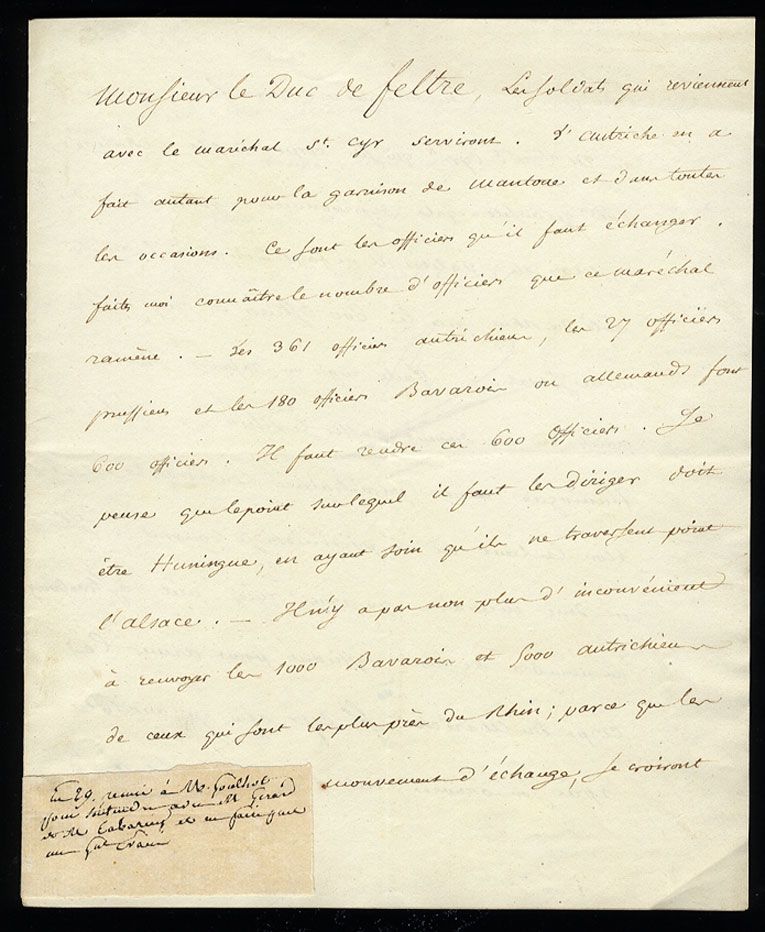 Monsieur le Duc de feltre, Les soldats qui reviennent
avec le maréchal St. Cyr serviront. L'autriche en a
fait autant pour la garnison de Mantoue et dans toutes
les occasions. Ce sont les officiers qu'il faut échanger.
faites moi connaître le nombre d'officiers que ce maréchal
ramène. — Les 361 officiers autrichiens, les 27 officiers
prussiens et les 180 officiers Bavarois ou allemands font
600 officiers. Il faut rendre ces 600 officiers. Je
pense que le point sur lequel il faut les diriger doit
être Huningue, en ayant soin qu'ils ne traversent point
l'alsace. — Il n'y a pas non plus d'inconvénient
à renvoyer les 1000 Bavarois et 5000 autrichiens
de ceux qui sont les plus près du Rhin; parce que les
mouvement d'échange, se croiront
Le 29. remis à M. Goulhot
pour s'entendre avec M. Gérard
et M. et en faire
au Gal